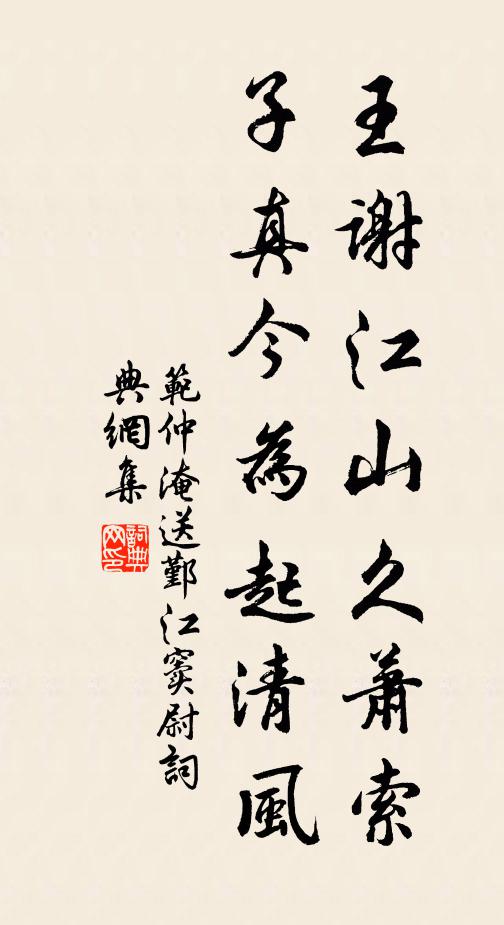 王謝江山久蕭索
子真今為起清風
範仲淹送鄞江竇尉詞
典網集
詞典
网印